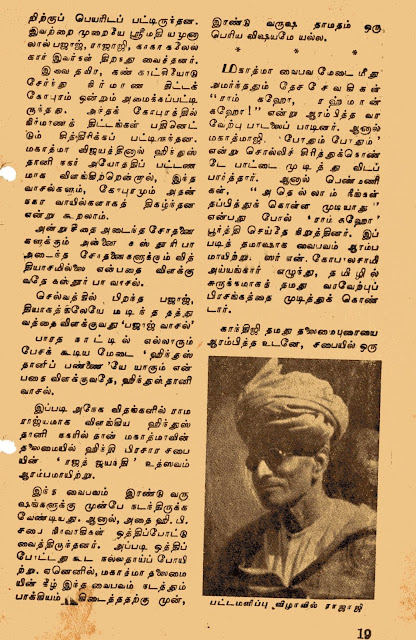 றிற்குப் பெயரிடப் பட்டிருந்தன.
இவற்றை முறையே ஸ்ரீமதி யமுனா
லால் பஜாஜ், ராஜாஜி, காகா கலேல்
கார் இவர்கள் திறந்து வைத்தனர்.
இவை தவிர, கண்காட்சியோடு
சேர்ந்து நிர்மாண திட்டக்
கோபுரம் ஒன்றும் அமைக்கப்பட்டி
ருந்தது. அந்தக் கோபுரத்தில்
நிர்மாணத் திட்டங்கள் பதினெட்
டும் சித்திரிக்கப் பட்டிருந்தன.
மகாத்மா விஜயத்தினால் ஹிந்துஸ்
தானி நகர் அயோத்திப் பட்டண
மாக விளங்கிற்றென்றால், இந்த
வாசல்களும், கோபுரமும் அதன்
நகர வாயில்களாகத் திகழ்ந்தன
என்று கூறலாம்.
அன்று சீதை அடைந்த சோதனை
களுக்கும் அன்னை கஸ்தூரிபா
அடைந்த சோதனைகளுக்கும் வித்
தியாசமில்லை என்பதை விளக்கு
வதே கஸ்தூர்பா வாசல்.
செல்வத்தில் பிறந்த பஜாஜ்,
தியாகத்திலேயே மடிந்த தத்து
வத்தை விளக்குவது 'பஜாஜ் வாசல்'
பாரத நாட்டில் எல்லாரும்
பேசக் கூடிய மேடை 'ஹிந்துஸ்
தானிப் பண்ணை'யே யாகும் என்
பதை விளக்குவதே, ஹிந்துஸ்தானி
வாசல்.
இப்படி அநேக விதங்களில் ராம
ராஜ்யமாக விளங்கிய ஹிந்துஸ்
தானி நகரில்தான் மகாத்மாவின்
தலைமையில் ஹிந்தி பிரசார சபை
யின் 'ரஜத ஜயந்தி' உத்ஸவம்
ஆரம்பமாயிற்று.
இந்த வைபவம் இரண்டு வரு
ஷங்களுக்கு முன்பே நடந்திருக்க
வேண்டியது. ஆனால், அதை ஹி. பி.
சபை நிர்வாகிகள் ஒத்திப்போட்டு
வைத்திருந்தனர். அப்படி ஒத்திப்
போட்டது கூட நல்லதாய்ப் போயி
ற்று. ஏனெனில், மகாத்மா தலைமை
யின் கீழ் இந்த வைபவம் நடத்தும்
பாக்கியம் கிடைத்ததற்கு முன்,
இரண்டு வருஷ தாமதம் ஒரு
பெரிய விஷயமே யல்ல.
* * * *
மகாத்மா வைபவ மேடை மீது
அமர்ந்ததும் தேச சேவிகைகள்
"ராம் கஹோ, ரஹ்மான்
கஹோ!" என்று ஆரம்பித்த வர
வேற்பு பாடலைப் பாடினர். ஆனால்
மகாத்மாஜி, "போதும் போதும்"
என்று சொல்லிச் சிரித்துக்கொண்
டே பாட்டை முடித்து விடப்
பார்த்தார். ஆனால் பெண்மணி
கள், "அதெல்லாம் நீங்கள்
தப்பித்துக் கொள்ள முடியாது"
என்பது போல் 'ராம் கஹோ'
பூர்த்தி செய்தே நிறுத்தினர். இப்
படித் தமாஷாக வைபவம் ஆரம்ப
மாயிற்று. ஸர் என். கோபாலசாமி
அய்யங்கார் எழுந்து, தமிழில்
சுருக்கமாகத் தமது வரவேற்புப்
பிரசங்கத்தை முடித்துக் கொண்
டார்.
காந்திஜி தமது தலைமையுரையை
ஆரம்பித்த உடனே, சபையில் ஒரு
பட்டமளிப்பு விழாவில் ராஜாஜி
19